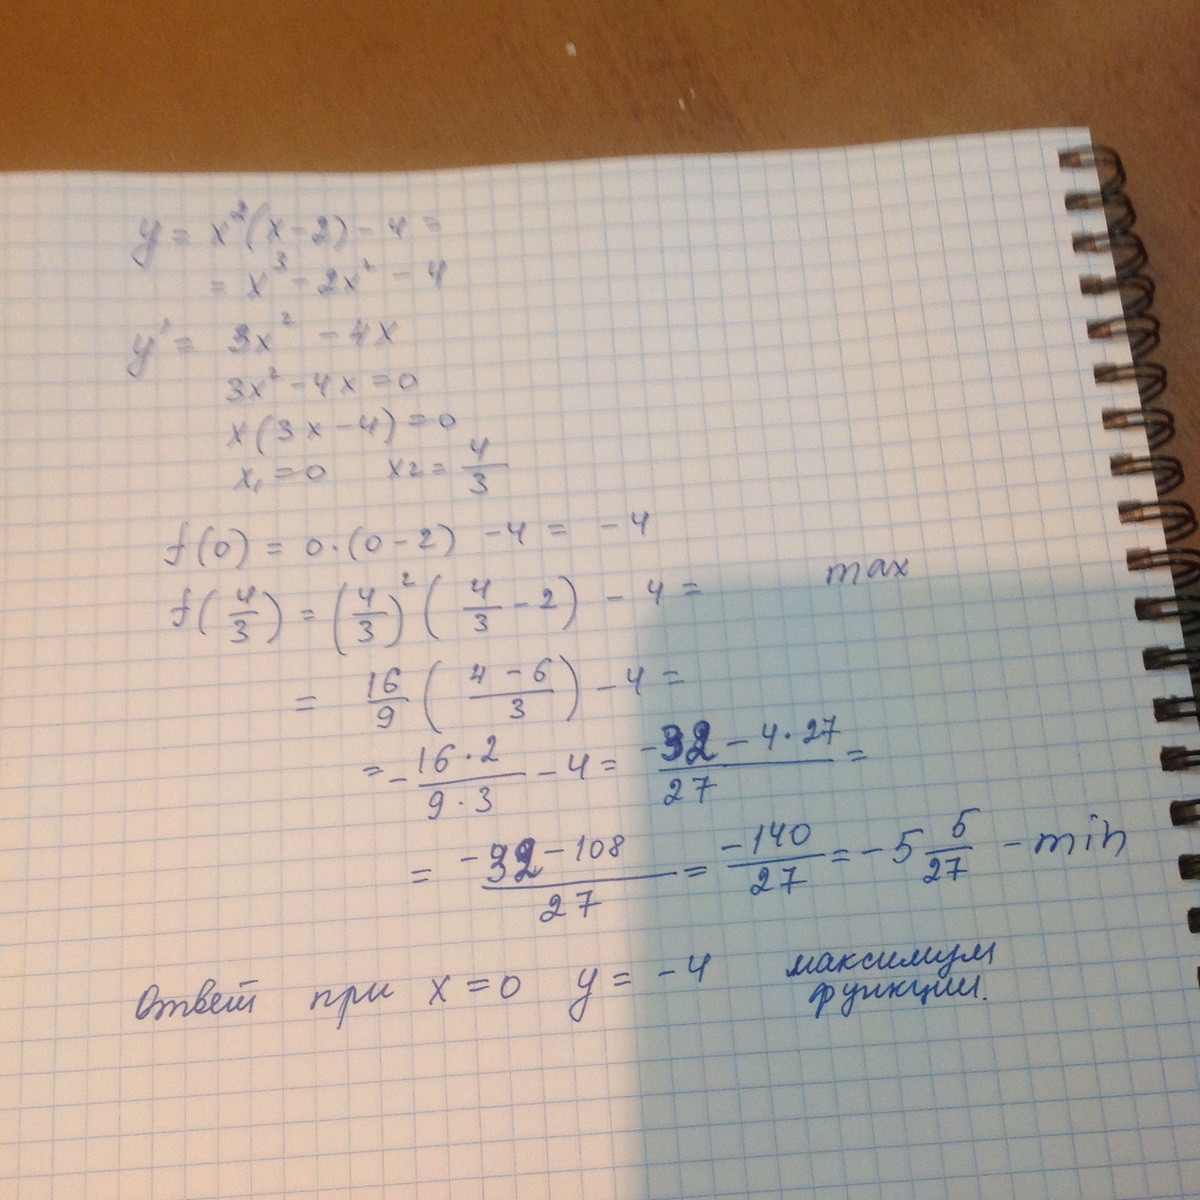 y = x²(x-2) - 4 =
= x³ - 2x² - 4
y' = 3x² - 4x
3x² - 4x = 0
x(3x - 4) = 0
x₁ = 0 x2 = 4/3
f(0) = 0·(0-2) - 4 = -4 max
f(4/3) = (4/3)²(4/3 - 2) - 4 =
= 16/9 ((4-6)/3) - 4 =
= - (16·2)/(9·3) - 4 = (-32 - 4·27)/27 =
= (-32 - 108)/27 = -140/27 = -5 5/27 - min
Ответ при x = 0 y = -4 максимум
функции.